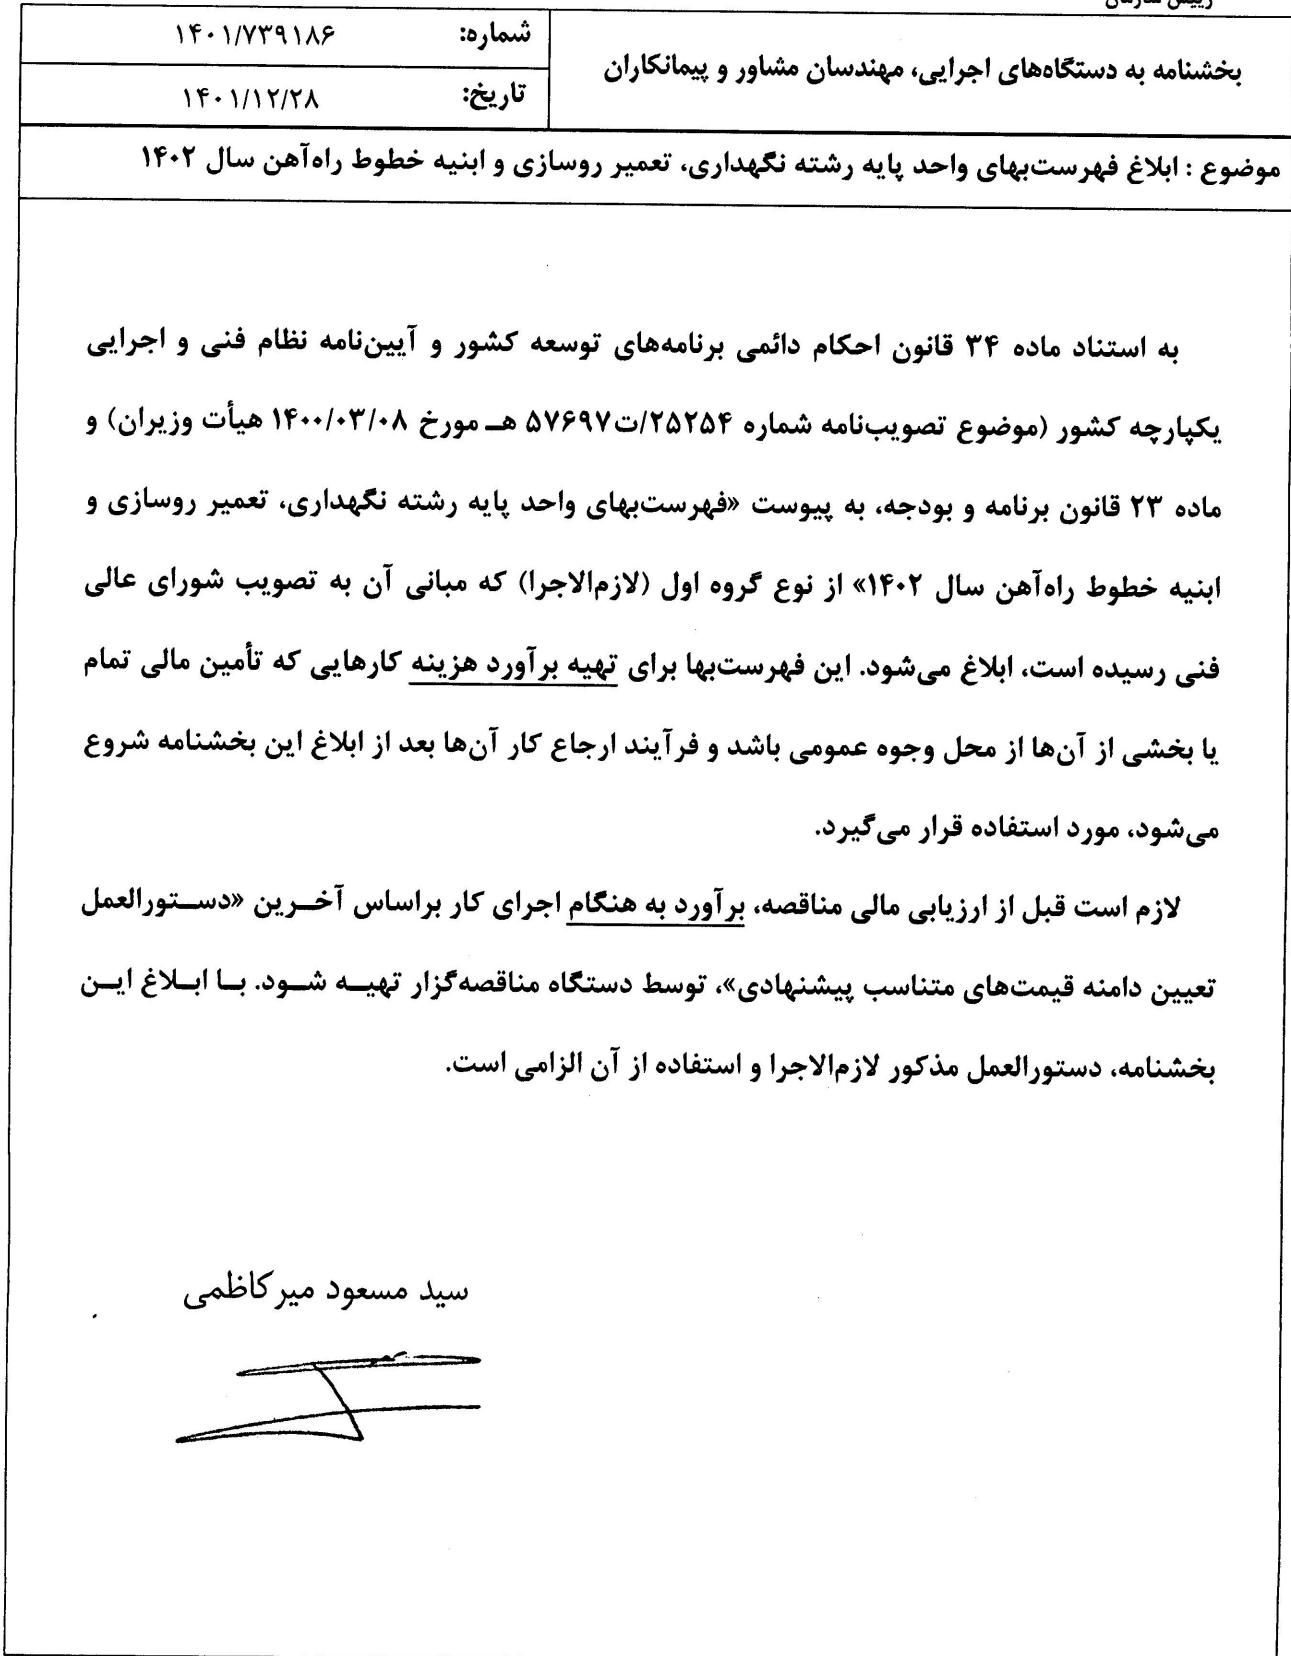 رییس سازمان
بخشنامه به دستگاه‌های اجرایی، مهندسان مشاور و پیمانکاران
شماره: ۱۴۰۱/۷۳۹۱۸۶
تاریخ: ۱۴۰۱/۱۲/۲۸
موضوع : ابلاغ فهرست‌بهای واحد پایه رشته نگهداری، تعمیر روسازی و ابنیه خطوط راه‌آهن سال ۱۴۰۲
به استناد ماده ۳۴ قانون احکام دائمی برنامه‌های توسعه کشور و آیین‌نامه نظام فنی و اجرایی
یکپارچه کشور (موضوع تصویب‌نامه شماره ۲۵۲۵۴/ت۵۷۶۹۷ هـ مورخ ۱۴۰۰/۰۳/۰۸ هیأت وزیران) و
ماده ۲۳ قانون برنامه و بودجه، به پیوست «فهرست‌بهای واحد پایه رشته نگهداری، تعمیر روسازی و
ابنیه خطوط راه‌آهن سال ۱۴۰۲» از نوع گروه اول (لازم‌الاجرا) که مبانی آن به تصویب شورای عالی
فنی رسیده است، ابلاغ می‌شود. این فهرست‌بها برای تهیه برآورد هزینه کارهایی که تأمین مالی تمام
یا بخشی از آن‌ها از محل وجوه عمومی باشد و فرآیند ارجاع کار آن‌ها بعد از ابلاغ این بخشنامه شروع
می‌شود، مورد استفاده قرار می‌گیرد.
لازم است قبل از ارزیابی مالی مناقصه، برآورد به هنگام اجرای کار براساس آخـرین «دسـتورالعمل
تعیین دامنه قیمت‌های متناسب پیشنهادی»، توسط دستگاه مناقصه‌گزار تهیـه شـود. بـا ابـلاغ ایـن
بخشنامه، دستورالعمل مذکور لازم‌الاجرا و استفاده از آن الزامی است.
سید مسعود میرکاظمی